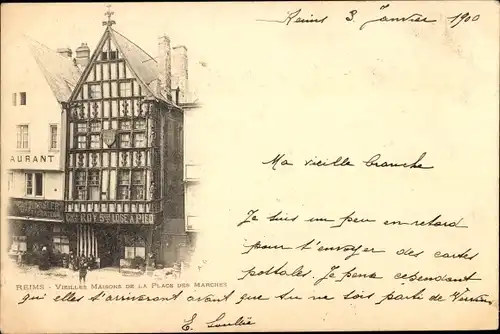 Reims 3 Janvier 1900
AURANT
Ma vieille branche
Je suis un peu en retard
pour t'envoyer des cartes
postales. Je pense cependant
REIMS - VIEILLES MAISONS DE LA PLACE DES MARCHÉS
qui elles t'arriveront avant que tu ne sois parti de
E.